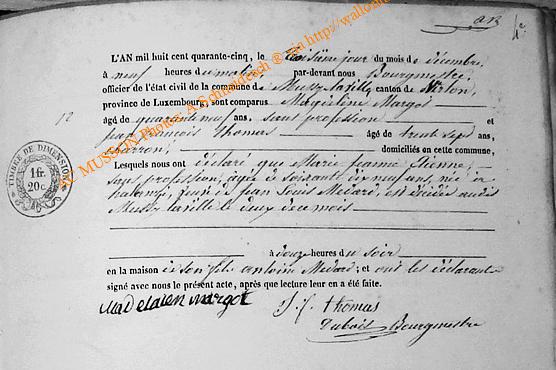 L'AN mil huit cent quarante-cinq, le troisième jour du mois de décembre,
à neuf heures du matin, par-devant nous Bourgmestre,
officier de l'état civil de la commune de Mussy-la-ville, canton de Virton,
province de Luxembourg, sont comparus Margot
âgé de quarante neuf ans, sans profession et
jean françois thomas âgé de trente sept ans,
charron; domiciliés en cette commune,
Lesquels nous ont déclaré que Marie jeanne Etienne,
sans profession, agée de soixante dix neuf ans, née à
de jean Louis Medard, est décédée audit
Mussy-la-ville le deux du mois
à douze heures du soir
en la maison de son fils antoine Medard; et ont les déclarants
signé avec nous le présent acte, après que lecture leur en a été faite.
margot
J. f. thomas
Dubois Bourgmestre
TIMBRE DE DIMENSION
1 fr.
20 c.
MUSSON Photos: A Schmideach ® via http://wallonia